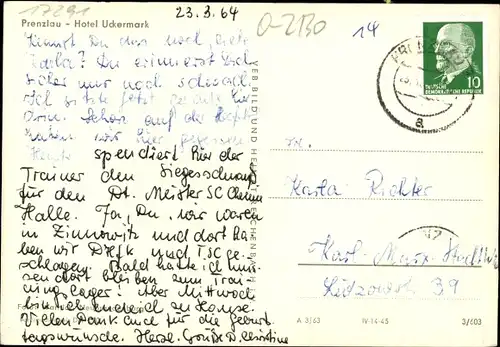 17291
23.3.64
O-2130
14
Prenzlau - Hotel Uckermark
Kennst Du das noch, liebe
Karla? Du erinnerst Dich
sicher nur noch schwach.
Ich sitze jetzt gerade hier
drin. Schon auf der
haben wir hier gegessen.
Heute spendiert hier der
Trainer den Siegesschnaps
für den Dt. Meister SC Chemie
Halle. Ja, Du, wir waren
in Zinnowitz und dort ha-
ben wir DHfK und TSC ge-
schlagen. Bald hätte ich müs-
sen dort bleiben zum Trai-
ningslager! Aber Mittwoch
bin ich endlich zu Hause.
Vielen Dank auch für die Geburt-
tagswünsche. Herzl. Grüße D. Christine
VEB BILD UND HEIMAT REICHENBACH
PRENZLAU
a
10
DEUTSCHE
DEMOKRATISCHE REPUBLIK
Karla Richter
Karl-Marx-Stadt
Lützowstr. 39
A 3/63 IV-14-45 3/603